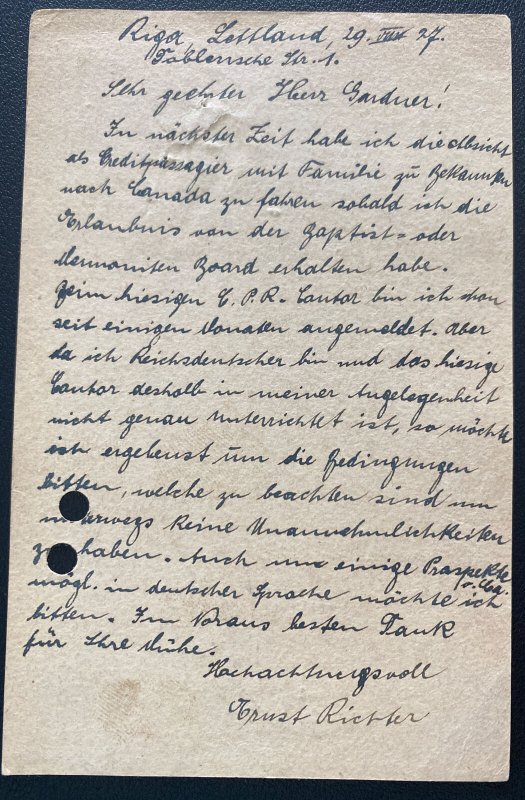 Riga, Lettland, 29. VIII 27.
Sehr geehrter Herr Gardner!
In nächster Zeit habe ich die Absicht
als Creditpassagier mit Familie zu Bekannten
nach Canada zu fahren sobald ich die
Erlaubnis von der Baptist- oder
Mennoniten Board erhalten habe.
Beim hiesigen C.P.R.- Contor bin ich schon
seit einigen Monaten angemeldet. Aber
da ich Reichsdeutscher bin und das hiesige
Contor deshalb in meiner Angelegenheit
nicht genau unterrichtet ist, so möchte
ich ergebenst um die Bedingungen
bitten, welche zu beachten sind um
unterwegs keine Unannehmlichkeiten
zu haben. Auch um einige Prospekte
mögl. in deutscher Sprache möchte ich
bitten. Im Voraus besten Dank
für Ihre Mühe.
Hochachtungsvoll
Ernst Richter